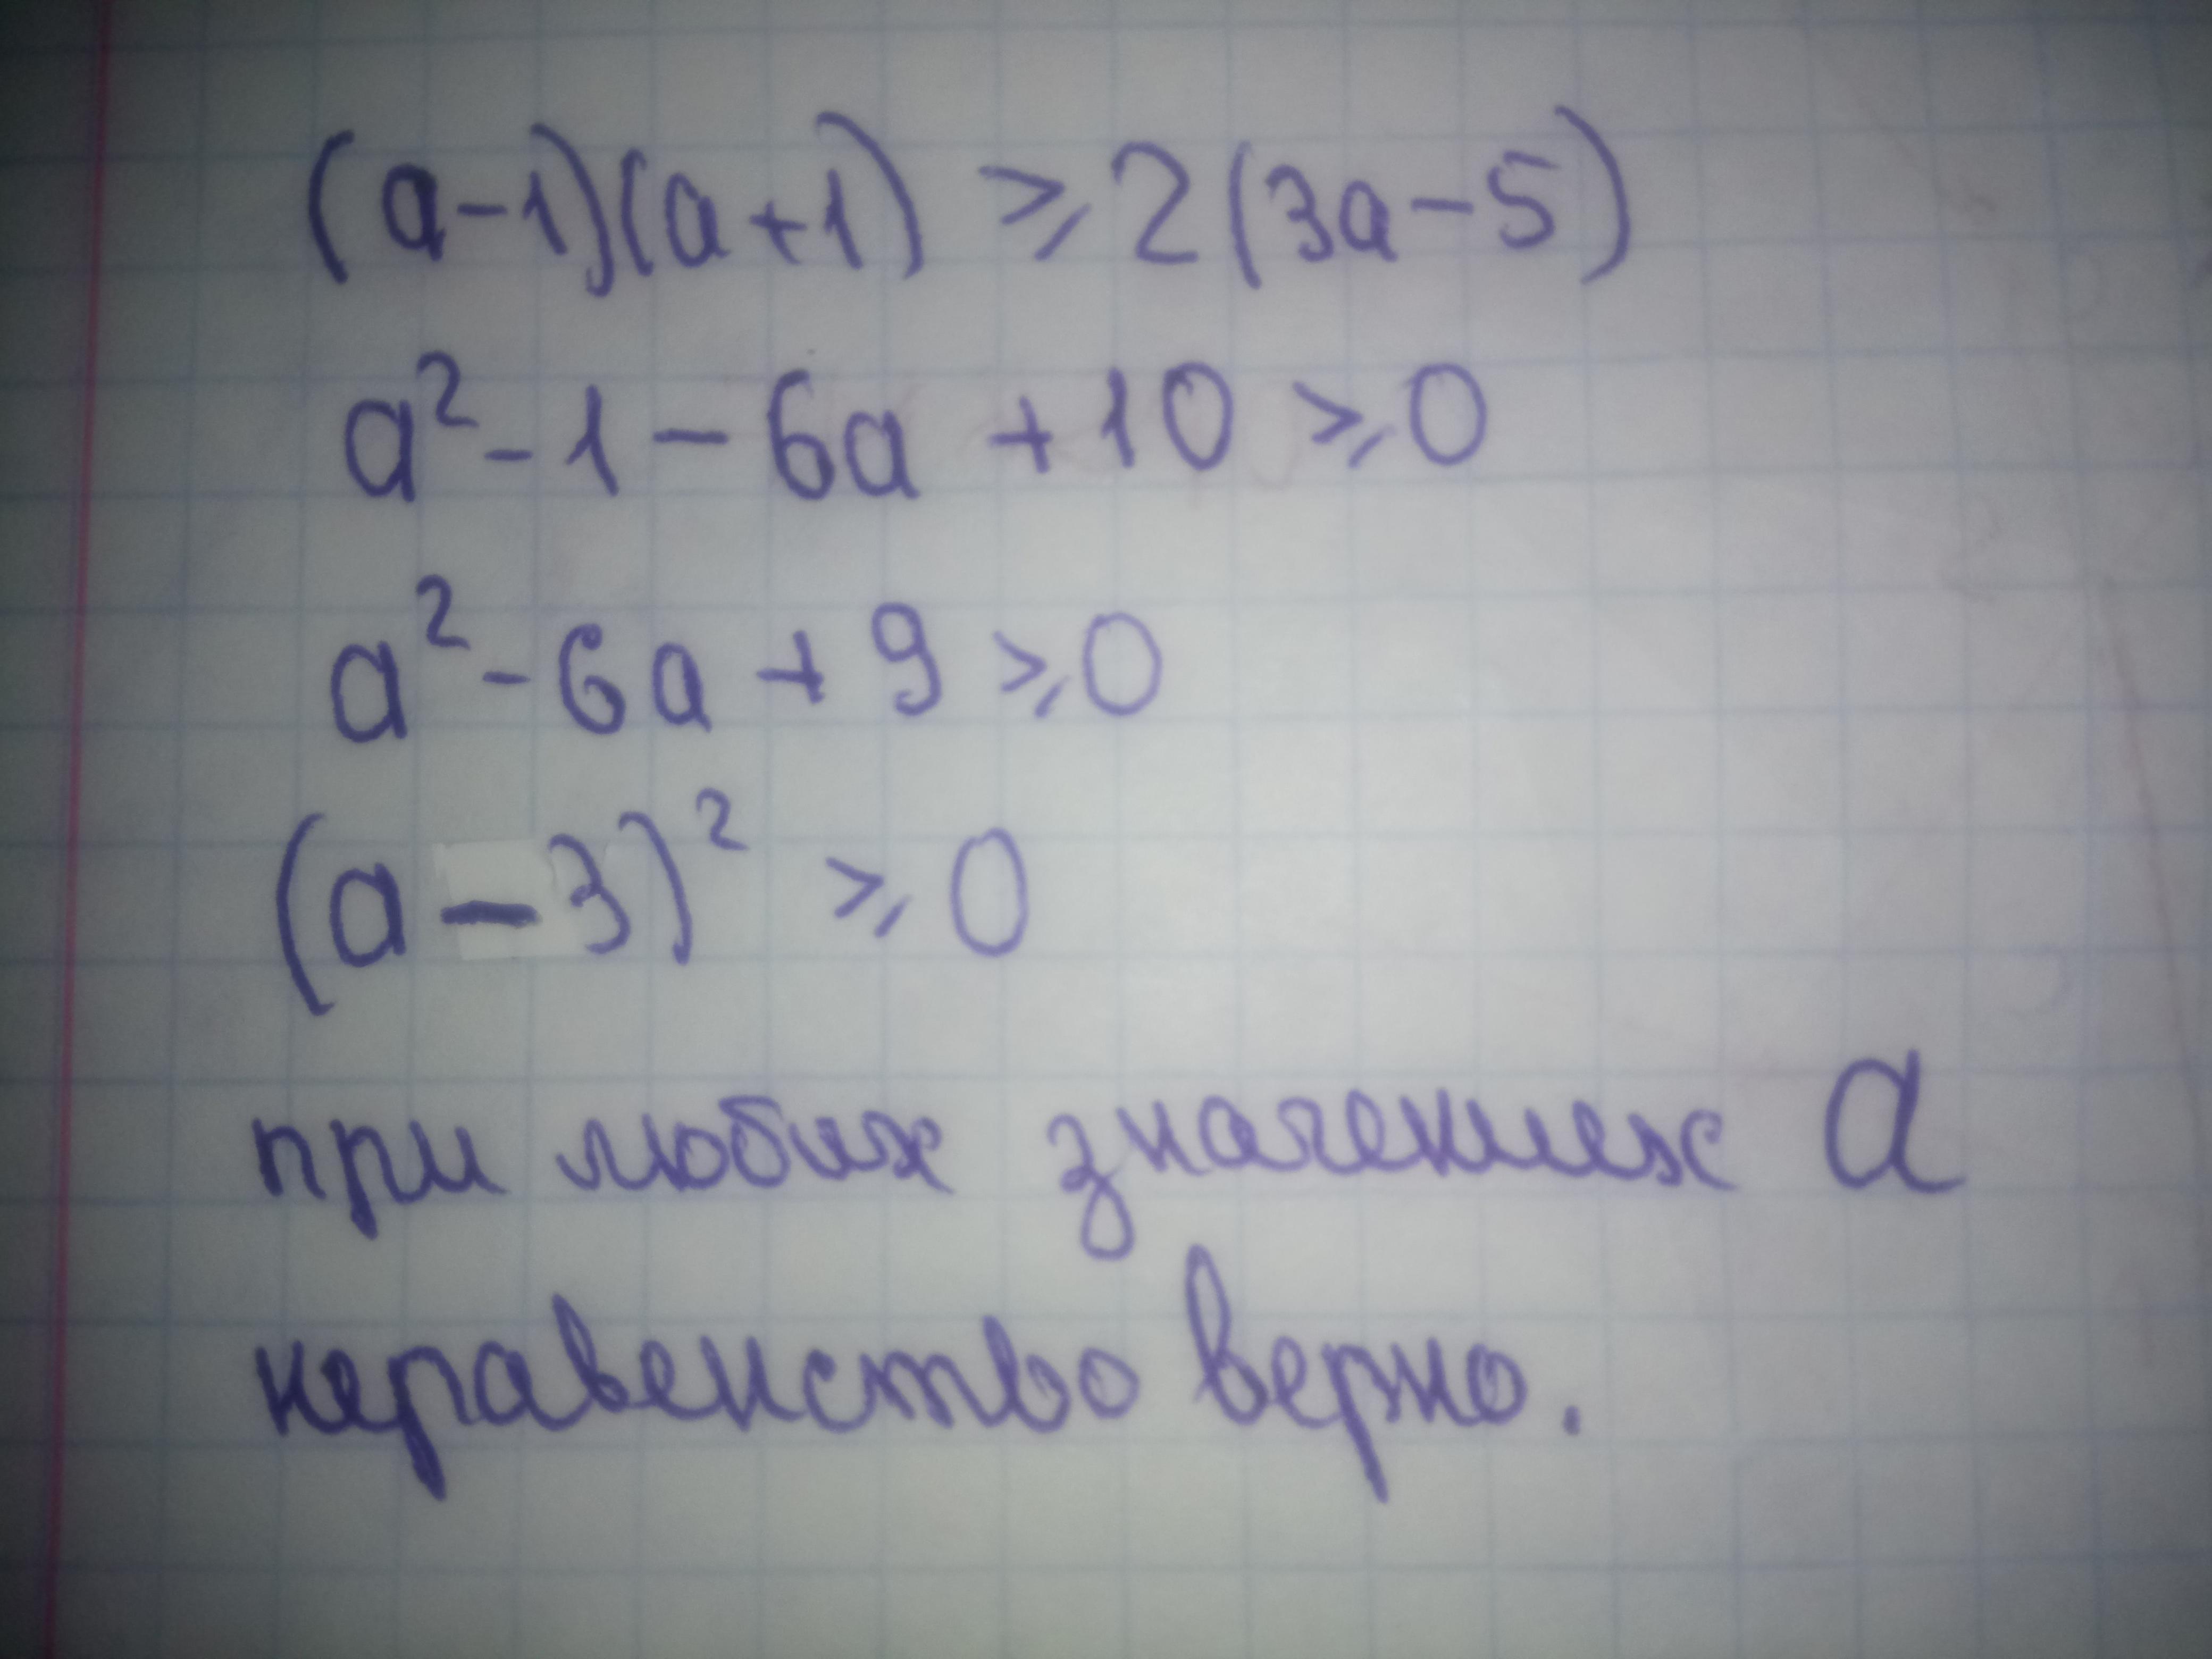 (a-1)(a+1) ⩾ 2(3a-5)
a² - 1 - 6a + 10 ⩾ 0
a² - 6a + 9 ⩾ 0
(a - 3)² ⩾ 0
при любих значениях a
неравенство верно.